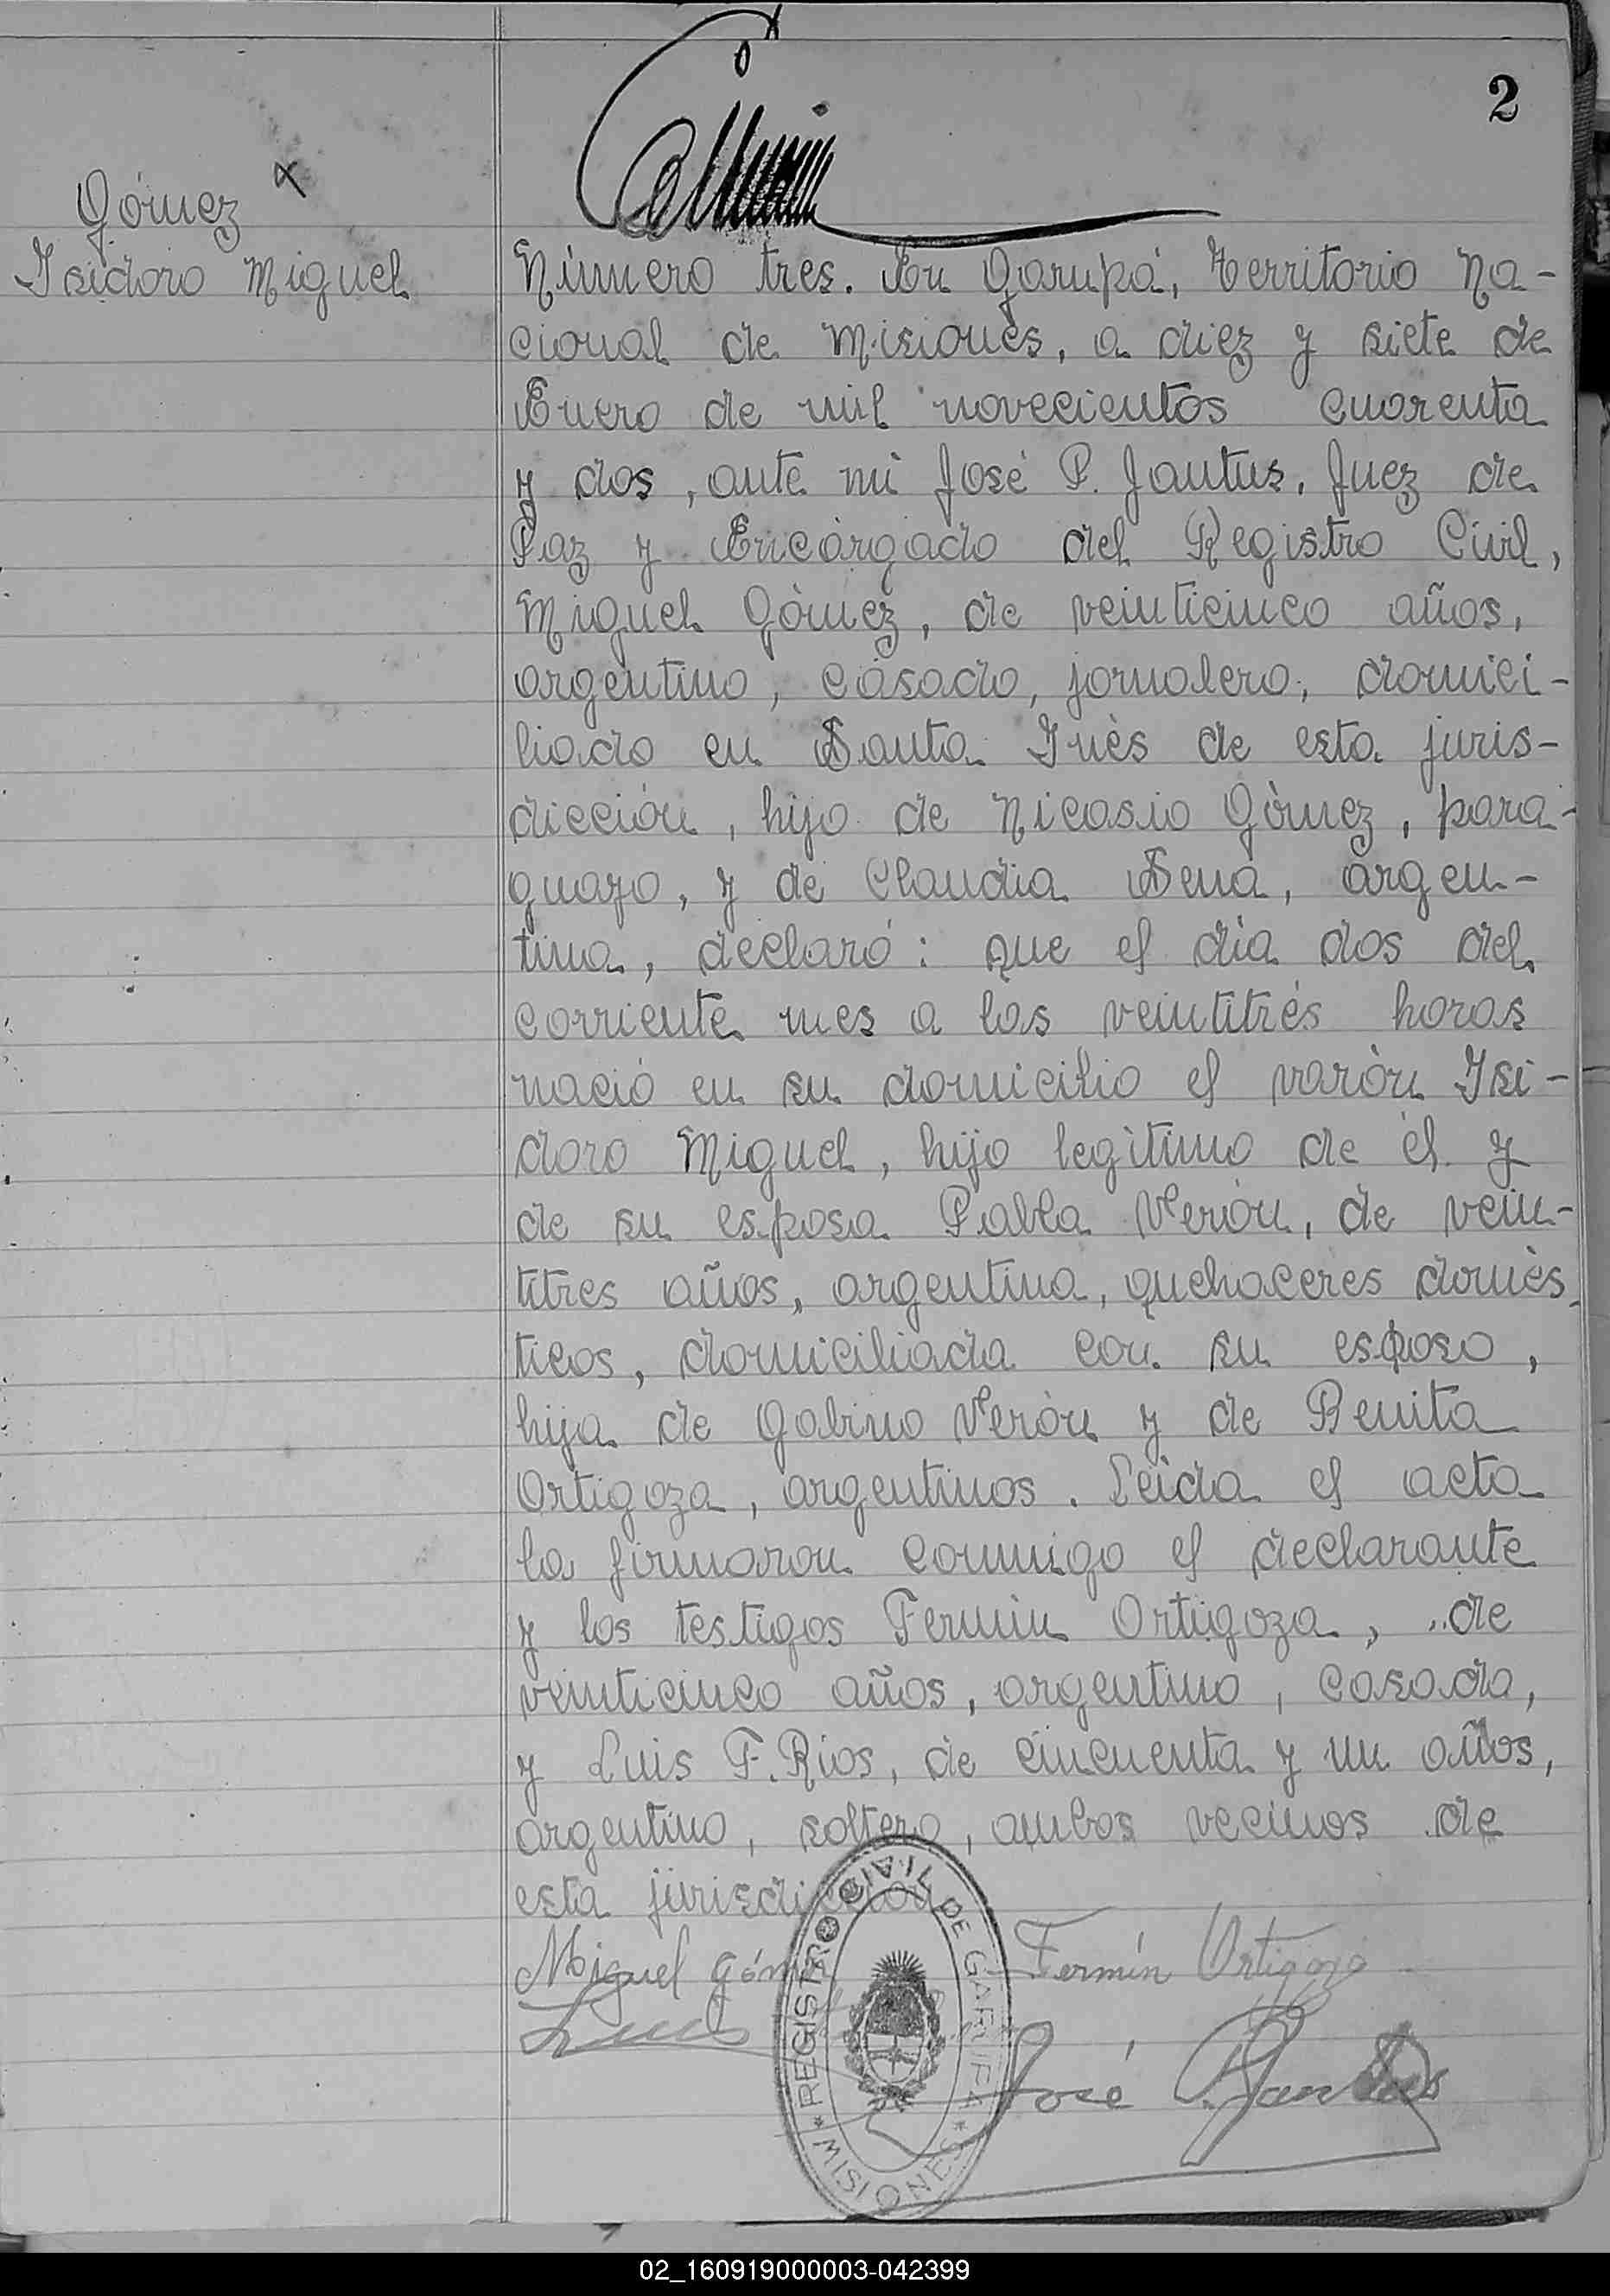 2
Gómez
Isidoro Miguel
Número tres. En Garupá, Territorio Na-
cional de Misiones, a diez y siete de
Enero de mil novecientos cuarenta
y dos, ante mi José P. Jantus, Juez de
Paz y Encargado del Registro Civil,
Miguel Gómez, de veinticinco años,
argentino, casado, jornalero, domici-
liado en Santa Inés de esta juris-
dicción, hijo de Nicasio Gómez, para-
guayo, y de Claudia Sena, argen-
tina, declaró: que el día dos del
corriente mes a las veintitrés horas
nació en su domicilio el varón Isi-
doro Miguel, hijo legítimo de él y
de su esposa Pabla Verón, de vein-
titres años, argentina, quehaceres domés
ticos, domiciliada con su esposo,
hija de Gabino Verón y de Benita
Ortigoza, argentinos. Leida el acta
la firmaron conmigo el declarante
y los testigos Fermin Ortigoza, de
veinticinco años, argentino, casado,
y Luis F. Rios, de cincuenta y un años,
argentino, soltero, ambos vecinos de
esta jurisdicción
Miguel Gómez Fermín Ortigoza
Luis
José P. Jantus
REGISTRO CIVIL DE GARUPA
* MISIONES *
02_160919000003-042399